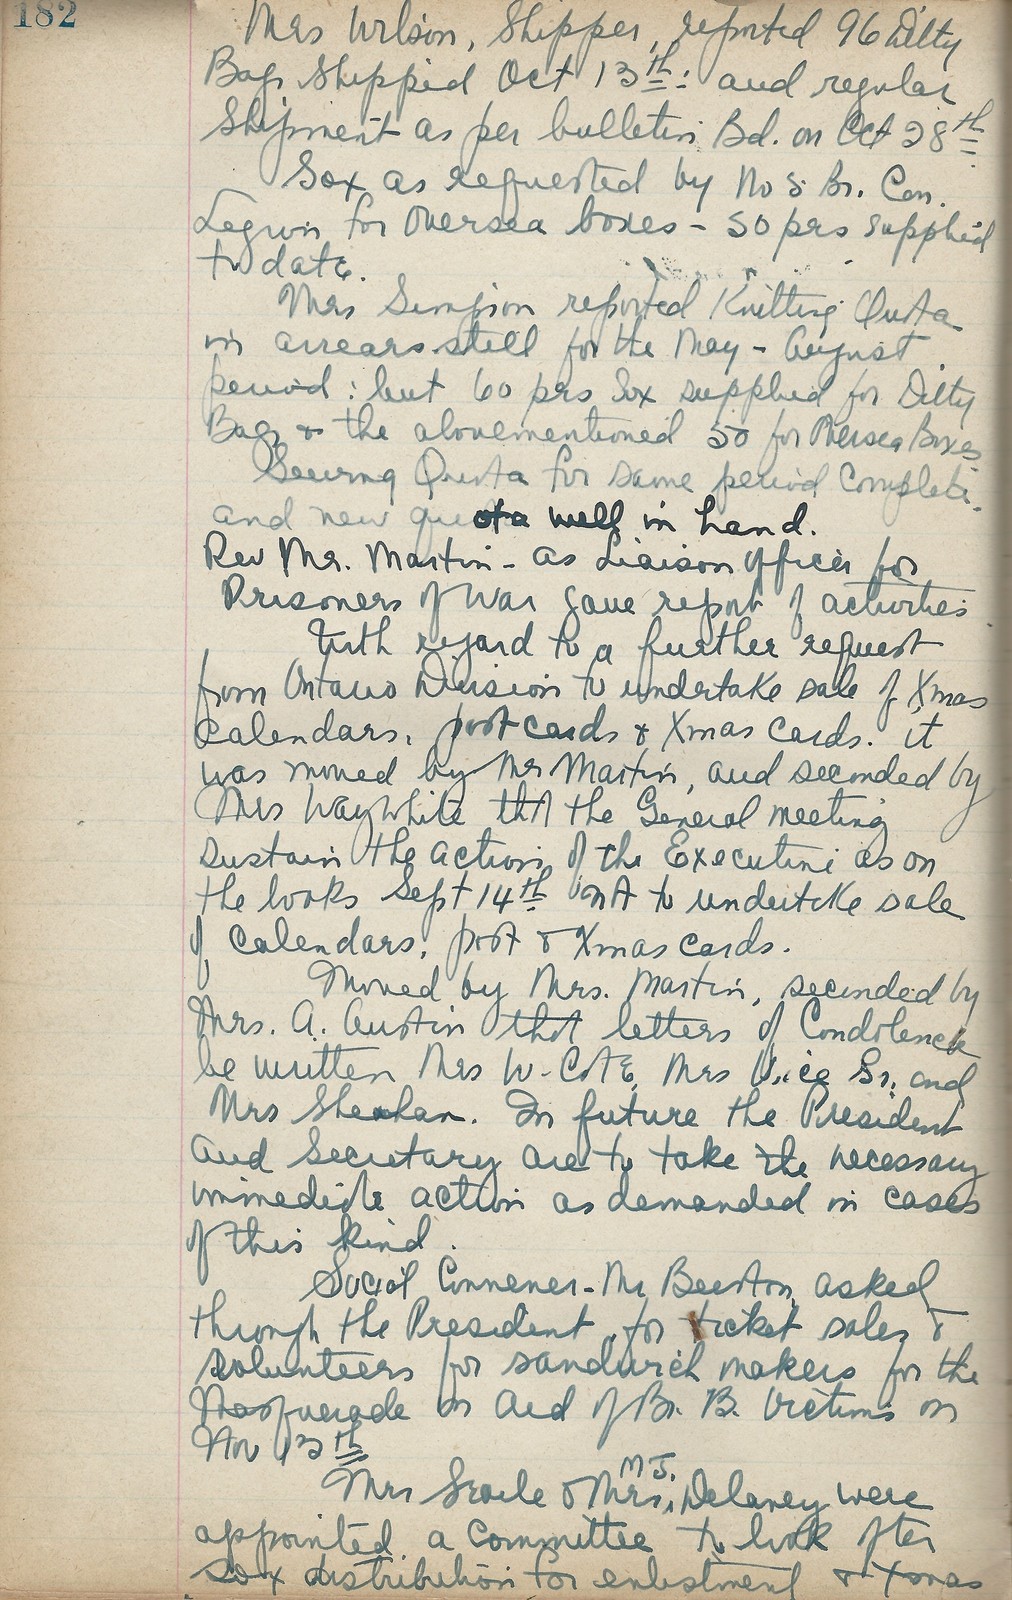 182
Mrs Wilson, Shipper, reported 96 Ditty
Bags Shipped Oct 13th: and regular
Shipment as per bulletin Bd. on Oct 28th
Sox as requested by No 5 Br. Can.
Legion for Oversea boxes - 50 prs supplied
to date.
Mrs Simpson reported Knitting Quota
in arrears still for the May - August
period: but 60 prs Sox supplied for Ditty
Bags & the abovementioned 50 for Oversea Boxes
Sewing Quota for same period Complete.
and new quota well in hand.
Rev Mr. Martin - as Liaison Officer for
Prisoners of War gave report of activities
With regard to a further request
from Ontario Division to undertake sale of Xmas
Calendars, post cards & Xmas Cards. it
was moved by Mr Martin, and seconded by
Mrs Waywhite that the General meeting
sustain the action of the Executive as on
the books Sept 14th not to undertake sale
of Calendars, post & Xmas cards.
Moved by Mrs. Martin, seconded by
Mrs. A. Austin that letters of Condolence
be written Mrs W. Coté, Mrs Vice Sr. and
Mrs Sheahan. In future the President
and Secretary are to take the necessary
immediate action as demanded in cases
of this kind.
Social Convener - Mr Beeston, asked
through the President, for ticket sales &
volunteers for sandwich makers for the
Masquerade in Aid of Br. B. Victims on
Nov 13th
Mrs Searle & Mrs. M J. Delaney were
appointed a Committee to look after
sox distribution for enlistment & Xmas